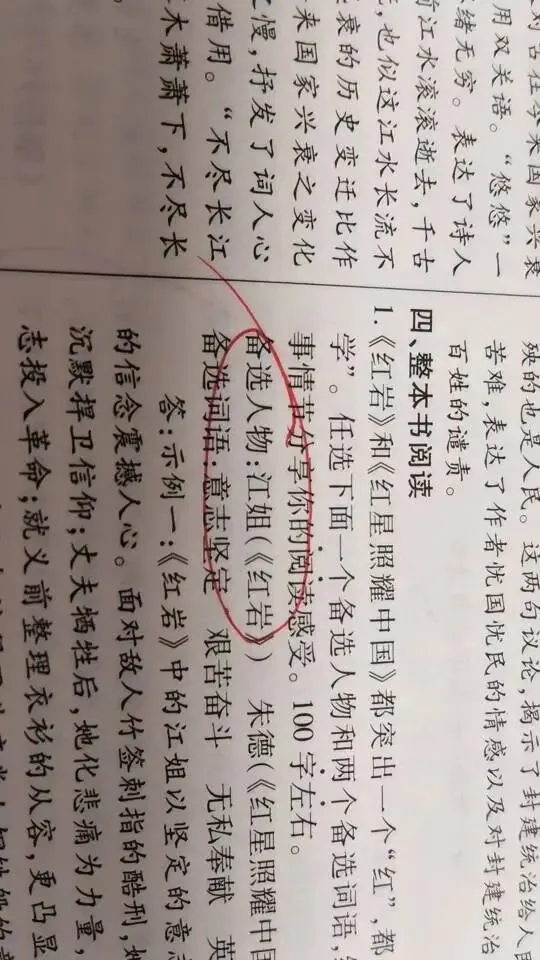 对古往今来国家兴衰
用双关语。“悠悠”一
绪无穷。表达了诗人
前江水滚滚逝去，千古
，也似这江水长流不
衰的历史变迁比作
来国家兴衰之变化
慢，抒发了词人心
借用。“不尽长江
木萧萧下，不尽长
殃的也是人民。这两句议论，揭示了封建统治给人民
苦难，表达了作者忧国忧民的情感以及对封建统治
百姓的谴责。
四、整本书阅读
1.《红岩》和《红星照耀中国》都突出一个“红”，都
学”。任选下面一个备选人物和两个备选词语，
事情节分享你的阅读感受。100字左右。
备选人物：江姐（《红岩》） 朱德（《红星照耀中国
备选词语：意志坚定 艰苦奋斗 无私奉献 英
答：示例一：《红岩》中的江姐以坚定的意志
的信念震撼人心。面对敌人竹签刺指的酷刑，她
沉默捍卫信仰；丈夫牺牲后，她化悲痛为力量，
志投入革命；就义前整理衣衫的从容，更凸显